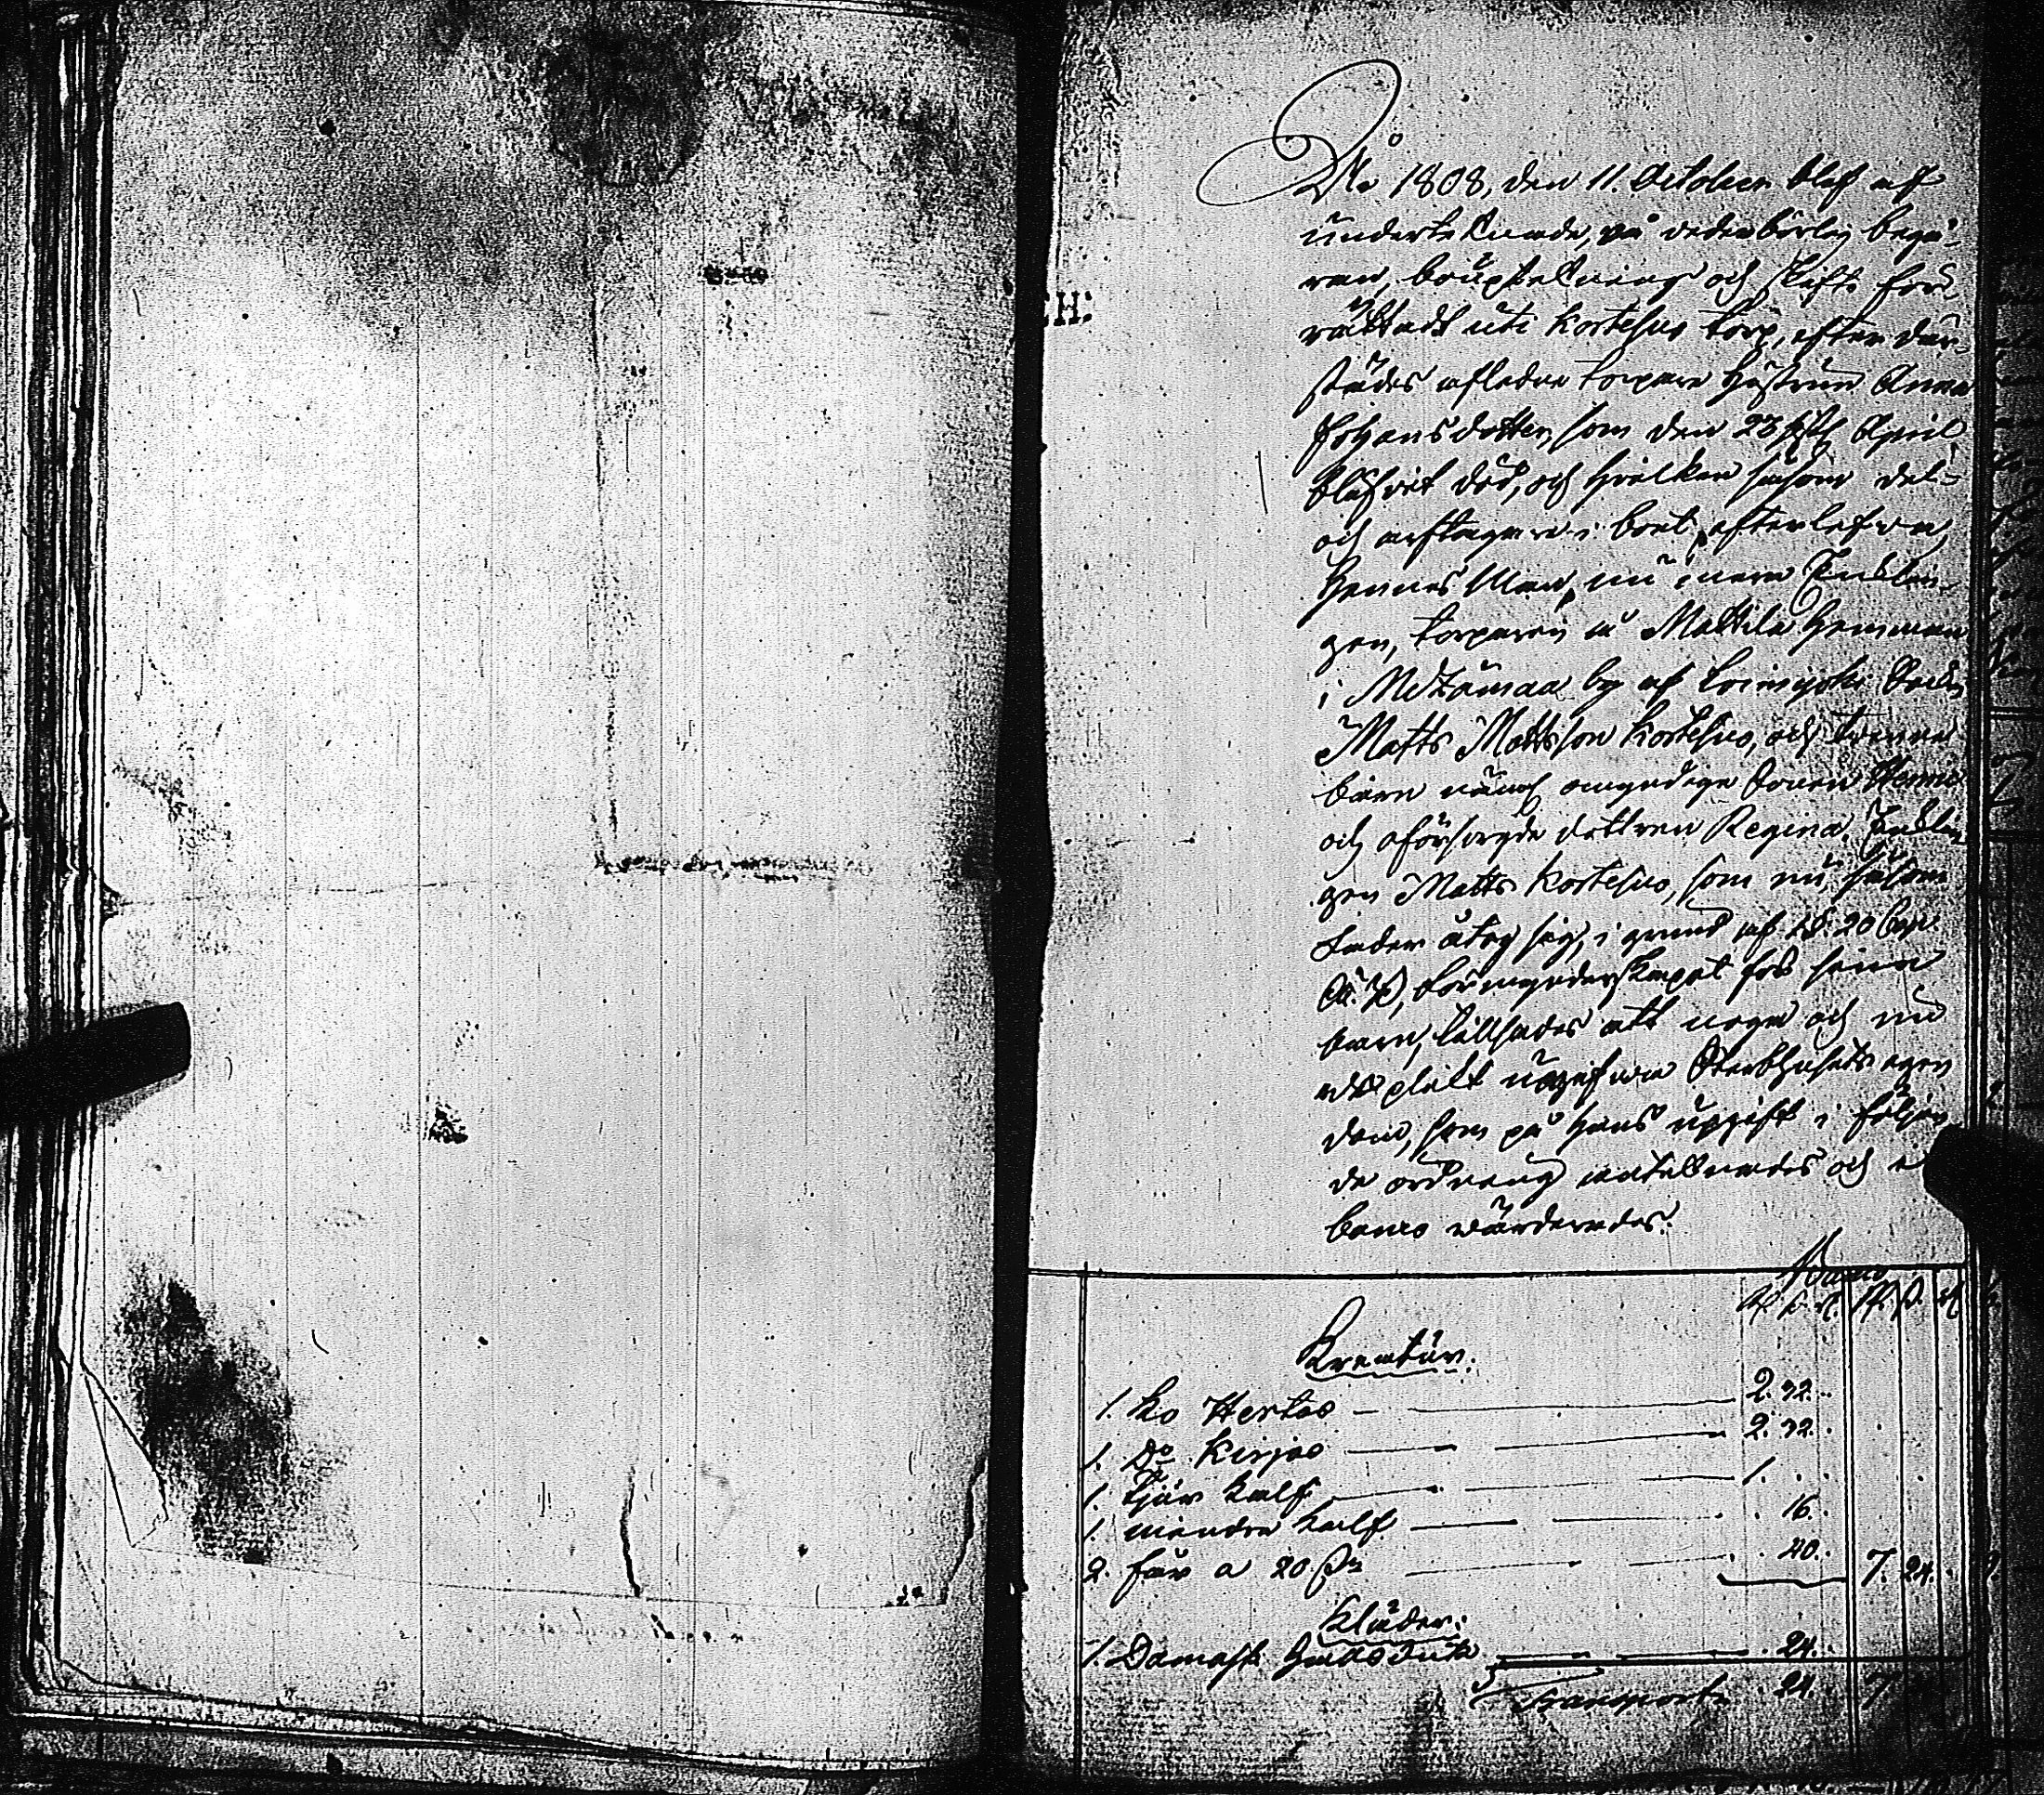 CH:
År 1808, den 11. October blef af
undertecknade, på vederbörlig begä-
ran, bouptekning och skifte för-
rättadt uti Kortesuo torp, efter där-
städes aflidne torpare hustrun Anna
Johansdotter, som den 23 sistl. April
blifvit död, och hvilken såsom del-
och arftagare i boet efterlefva,
hennes Man, nu mera Enklin-
gen, torparen å Mattila hemman
i Metzämaa by af Loimijoki Sockn
Matts Mattsson Kortesuo, och tvenne
barn näml. omyndige sonen Henric
och oförsörgde dottren Regina. Enklin-
gen Matts Kortesuo, som nu såsom
fader åtog sig, i grund af 1 §. 20 Cap.
Ä. B, förmynderskapet för sina
barn, tillsades att noga och
upgifva Sterbhusets egen
dom, som på hans upgift i följan
de ordning antecknades och i
banco värderades.
Banco
Kreatur.
1. Ko Hertas 2. 32.
1. Do Kirjas 2. 32.
1. Tjur kalf 1.
1. mindre kalf 16.
2. får a 20 s 40. 7. 24.
Kläder.
1. Damask halsduk 24.
Transport 24. 7